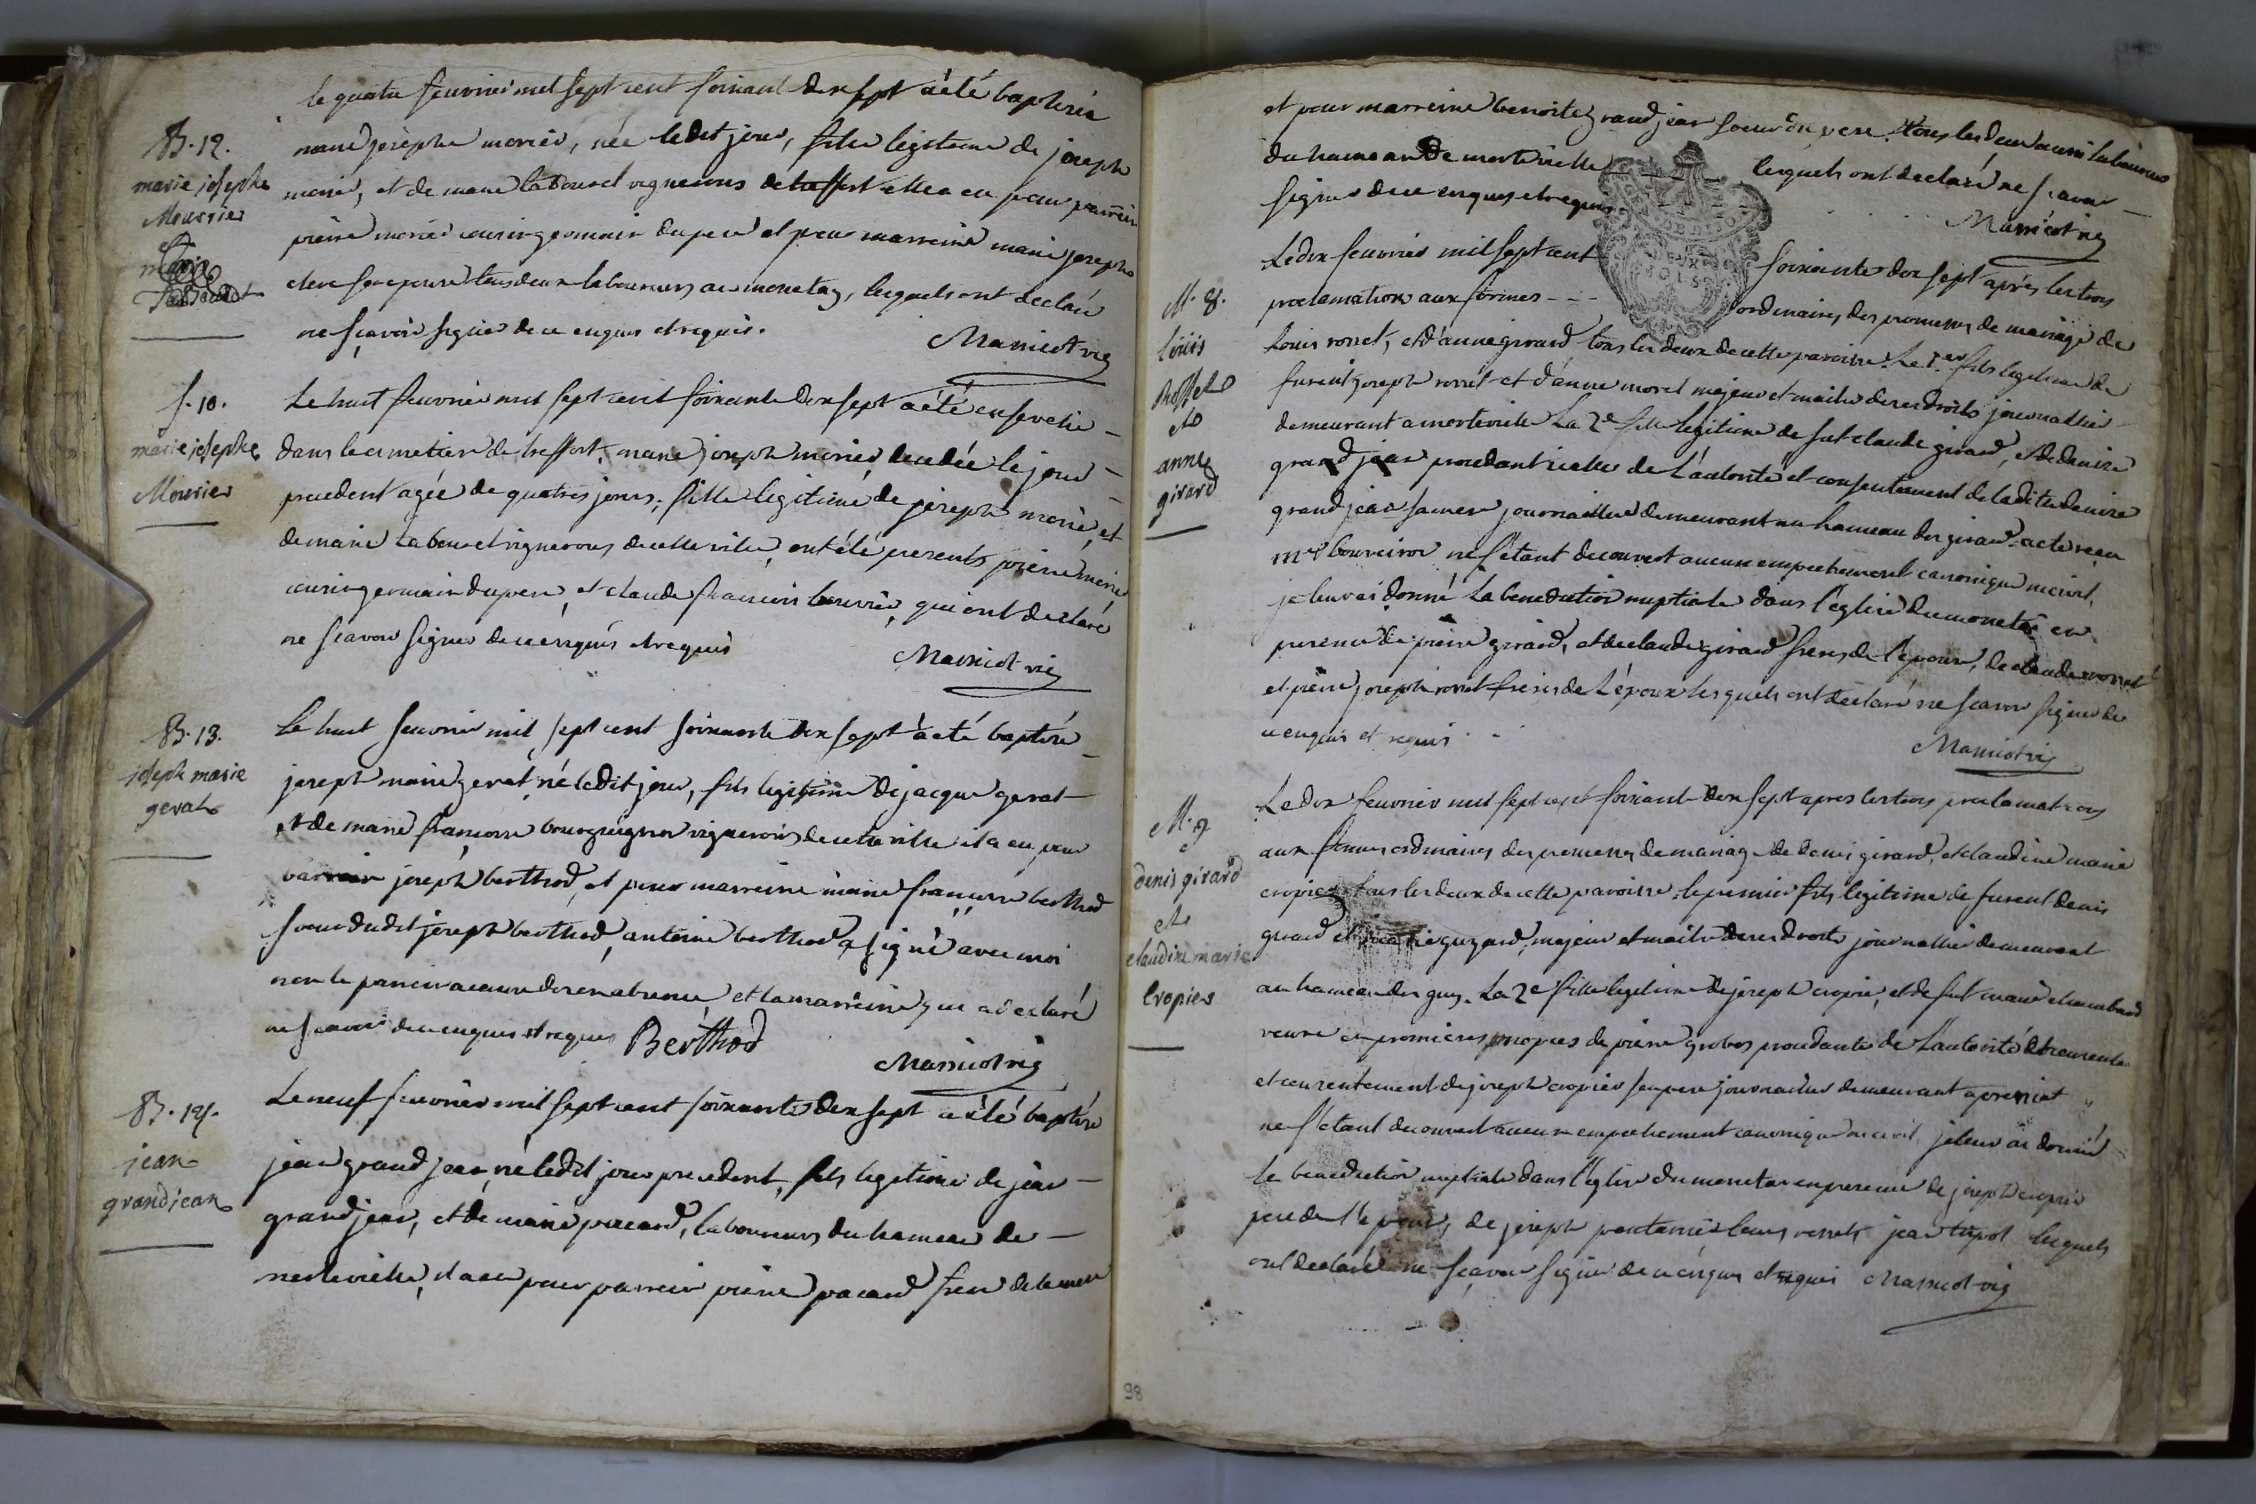 le quatre feuvrier mil sept cent soixante dix sept a été baptisée
B. 12.
marie josephe
Mourier
marie josephe morier, née ledit jour, fille legitime de joseph
morié, et de marie vignerons de treffort elle a eu pour parrein
pierre morier cousin germain du pere et pour marreine marie josephe
son epouse tous deux laboureurs au monetay, lesquels ont declaré
ne sçavoir signer de ce enquis et requis.
Massicot vic
S. 10.
marie josephe
Mourier
Le huit feuvrier mil sept cent soixante dix sept a été ensevelie
dans le cimetiere de treffort, marie joseph morier decedée le jour
precedent agée de quatres jours, fille legitime de joseph morié, et
de marie vignerons de cette ville, ont été presents pierre morier
cousin germain du pere, et claude francois qui ont declaré
ne sçavoir signer de ce enquis et requis
Massicot vic
B. 13.
joseph marie
gerat
Le huit feuvrier mil sept cent soixante dix sept a été baptisé
joseph marie gerat, né ledit jour, fils legitime de jacque gerat
et de marie francoise bourguignon vignerons de cette ville il a eu pour
parrein joseph berthod, et pour marreine marie francoise berthod
soeur dudit joseph berthod, antoine berthod a signé avec moi
non le parrein a cause de son absence et la marreine qui a declaré
ne sçavoir de ce enquis et requis Berthod
Massicot vic
B. 14.
jean
grandjean
Le neuf feuvrier mil sept cent soixante dix sept a été baptisé
jean grand jean, né ledit jour precedent, fils legitime de jean
grand jean, et de marie pacard, laboureurs du hameau de
mortevielle, il a eu pour parrein pierre pacard frere de la mere
et pour marreine benoite grand jean soeur du pere tous les deux aussi laboureurs
du hameau de mortevielle lesquels ont declaré ne sçavoir
signer de ce enquis et requis
Massicot vic
M. 8.
Louis
Rosset
et
anne
girard
Le dix feuvrier mil sept cent soixante dix sept après les trois
proclamations aux formes ordinaires des promesses de mariage de
Louis rosset, et d'anne girard tous les deux de cette paroisse. Le 1er fils legitime de
furent joseph rosset et d'anne morel majeur et maitre de ses droits journallier
demeurant a mortevielle La 2e fille legitime de fut claude girard, et de denise
grand jean procedant icelle de L'autorité et consentement de ladite denise
grand jean sa mere journalliere demeurant au hameau des girard acte reçu
me ne s'étant decouvert aucun empechement canonique ni civil,
je leur ai donné La benediction nuptiale dans l'eglise du monetay en
presence de pierre girard, et de claude girard freres de l'epouse, de claude rosset
et pierre joseph rosset freres de L'époux lesquels ont declaré ne sçavoir signer de
ce enquis et requis
Massicot vic
M. 9
denis girard
et
claudine marie
Cropier
Le dix feuvrier mil sept cent soixante dix sept apres les trois proclamations
aux formes ordinaires des promesses de mariage de denis girard, et claudine marie
cropier tous les deux de cette paroisse. le premier fils legitime de furent denis
girard et guyard, majeur et maitre de ses droits journallier demeurant
au hameau des guy. La 2e fille legitime de joseph cropier, et de fut
veuve en premieres nopces de pierre grobos procedante de L'autorité
et consentement de joseph cropier son pere journallier demeurant a
ne s'étant decouvert aucun empechement canonique ni civil je leur ai donné
la benediction nuptiale dans l'eglise du monetay en presence de joseph cropier
pere de l'epouse, de joseph jean lesquels
ont declaré ne sçavoir signer de ce enquis et requis Massicot vic
98